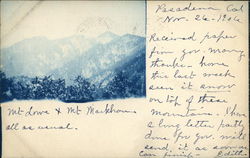 Pasadena Cal
Nov. 26-1906
Received paper
from you. Many
thanks - home
this last week
seen it snow
on top of these
Mountains. I have
a long letter part
done for you. will
send it as soon as
Can finish - Edith
Mt Lowe & Mt Markham
all as usual.